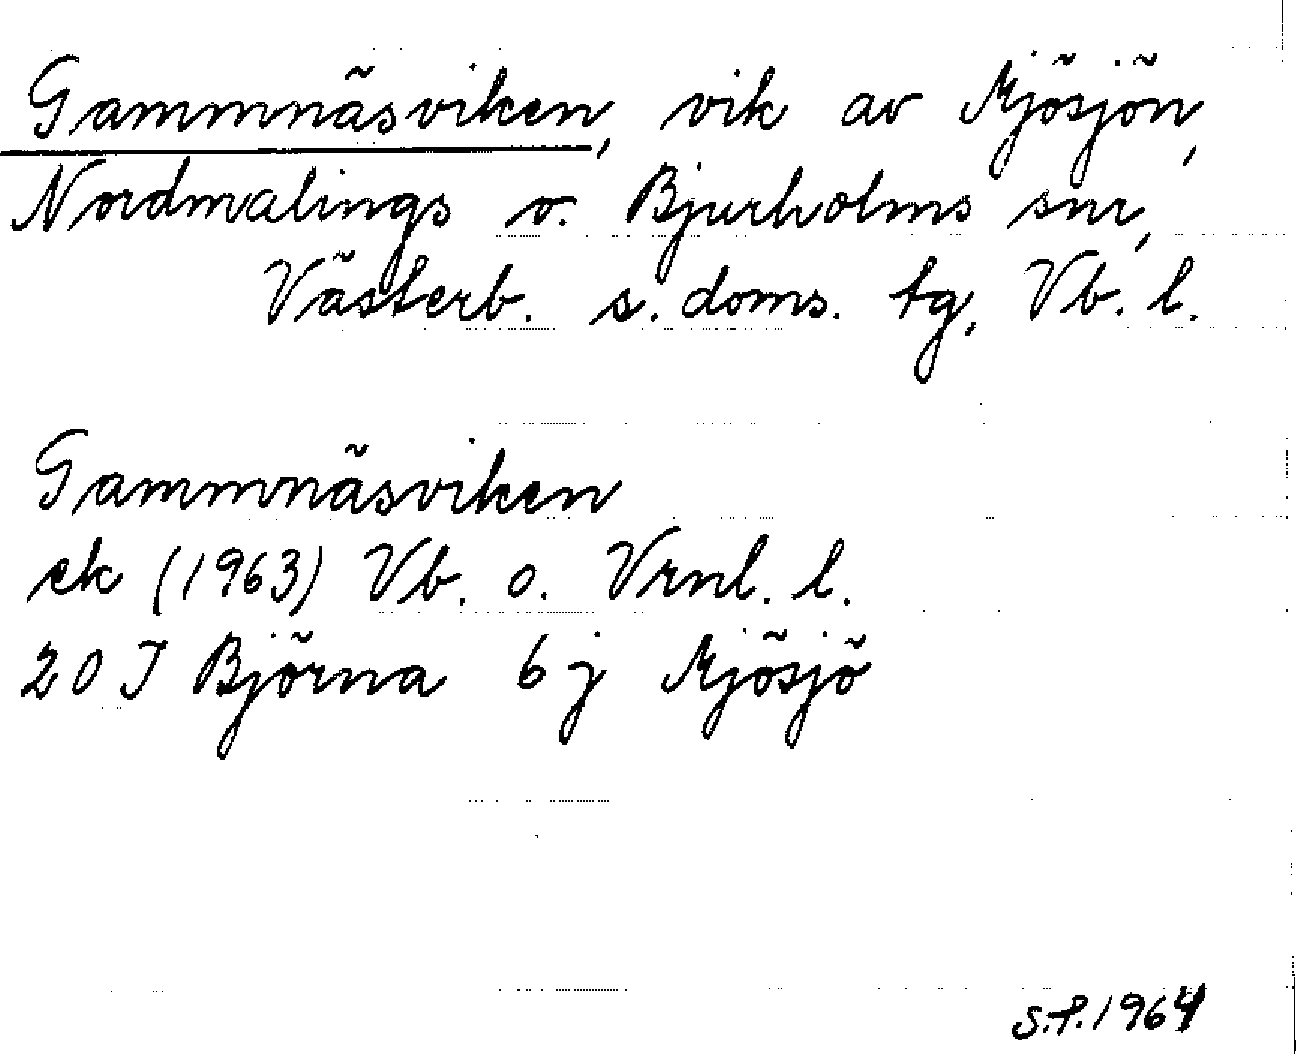 Gammnäsviken, vik av Mjösjön,
Nordmalings o. Bjurholms snr,
Västerb. s. doms. tg, Vb. l.
Gammnäsviken
ek (1963) Vb. o. Vrnl. l.
20 J Björna 6 j Mjösjö
S.P. 1964